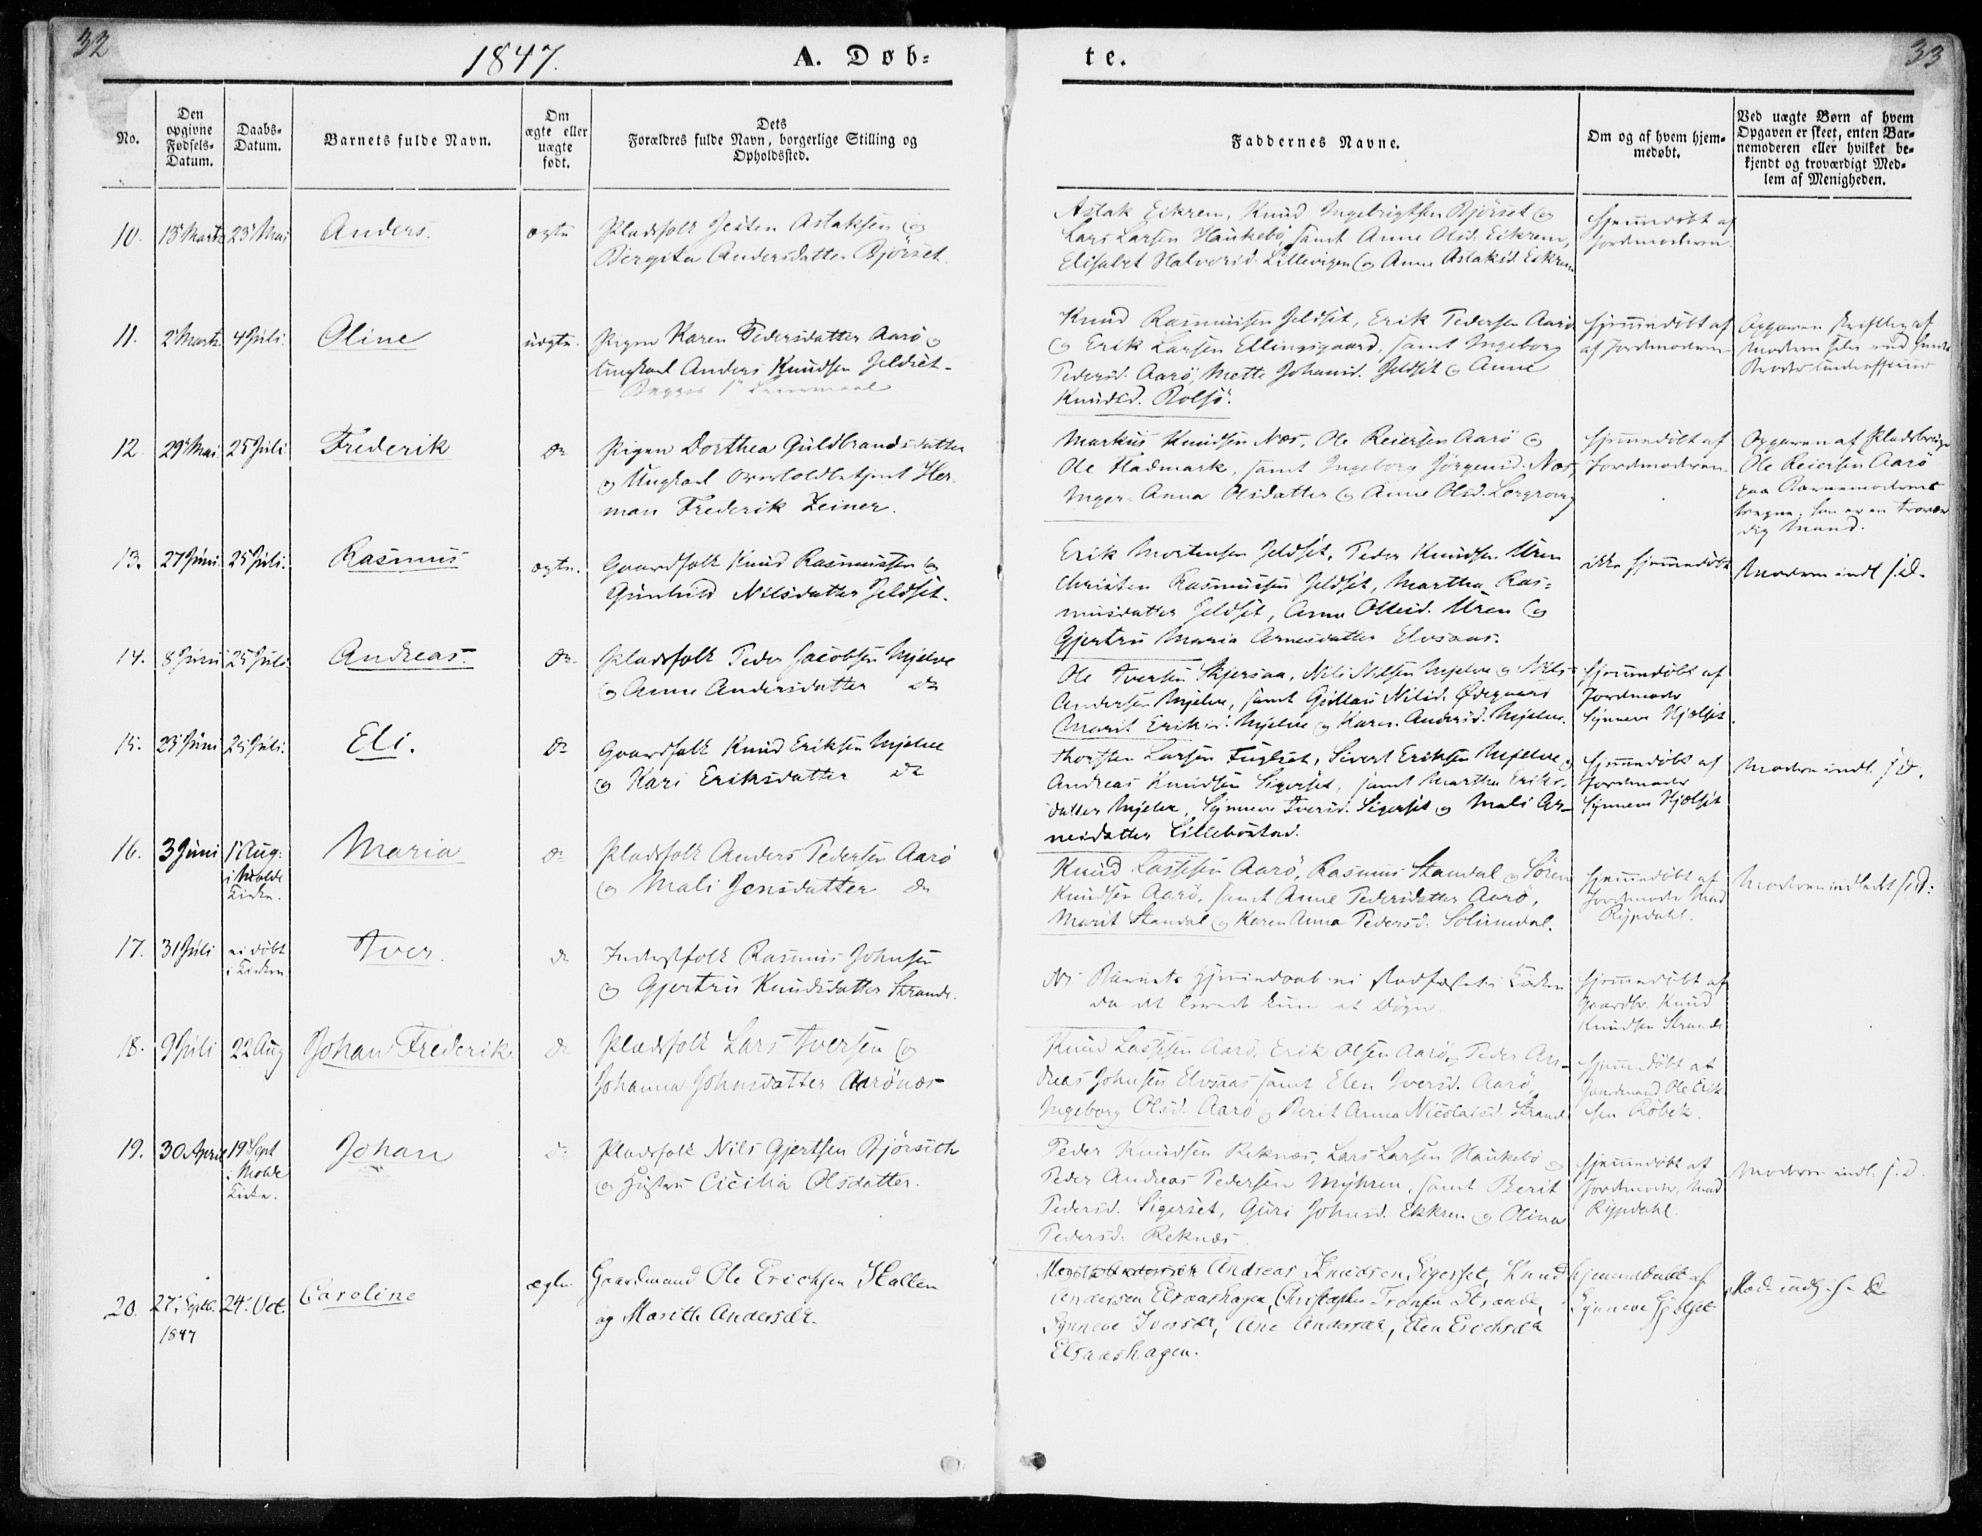 32
1847.
A. Døb-
te.
33
No.
Den opgivne Fødsels-Datum.
Daabs-Datum.
Barnets fulde Navn.
Om ægte eller uægte født.
Dets
Forældres fulde Navn, borgerlige Stilling og
Opholdssted.
Faddernes Navne.
Om og af hvem hjem-
medøbt.
Ved uægte Børn af hvem
Opgaven er skeet, enten Bar-
nemoderen eller hvilket be-
kjendt og troværdigt Med-
lem af Menigheden.
10. 13 Marts 23 Mai Anders. ægte
Pladsfolk Josten Aslaksen og
Bergita Andersdatter Bjørset.
Aslak Eikrem, Knud Ingebrigtsen Bjørset og
Lars Larsen Haukebø, samt Anne Olsd. Eikrem,
Elisabet Halvorsd. Lillevigen og Anne Aslaksd. Eikrem
Hjemmedøbt af
Jordmoderen
11. 2 Marts 4 Juli. Oline uægte.
Pigen Karen Pedersdatter Aarø og
Ungkarl Anders Knudsen Jeldset-
Begges 1ste Leiermaal
Knud Rasmussen Jeldset, Erik Pedersen Aarø
og Erik Larsen Ellingsgaard, samt Ingeborg
Pedersd. Aarø, Mette Johansd. Jeldset og Anne
Knudsd. Bolsø.
Hjemmedøbt af
af Jordmoderen
Opgaven skriftlig af
Moderen selv med hendes
Broders Underskrift
12. 29 Mai 25 Juli Frederik do
Pigen Dorthea Guldbrandsdatter
og Ungkarl Overtoldbetjent Her-
man Frederik Zeiner.
Markus Knudsen Næs, Ole Reiersen Aarø og
Ole Fladmark, samt Ingeborg Jørgensd. Næs,
Inger Anna Olsdatter og Anne Olsd.
Hjemmedøbt af
Jordmoderen
Opgaven af
Ole Reiersen Aarø
paa Barnemoderens
Vegne; han er en trovær
dig Mand.
13. 27 Juni 25 Juli. Rasmus ægte.
Gaardfolk Knud Rasmussen og
Gunhild Nilsdatter Jeldset.
Erik Mortensen Jeldset, Peder Knudsen Uren
Christen Rasmussen Jeldset, Martha Ras-
musdatter Jeldset, Anne Olsd. Uren og
Gjertru Maria Arnesdatter Elvsaas.
ikke hjemmedøbt
Moderen indl. s. D.
14. 8 Juni 25 Juli Andreas. do
Pladsfolk Peder Jacobsen Mjelve
og Anne Andersdatter do
Ole Iversen Skjersaa, Nils Nilsen Mjelve og Nils
Andersen Mjelve, samt Nilsd. Ødegaard
Marit Eriksd. Mjelve og Karen Andersd. Mjelve.
Hjemmedøbt af
Jordmoder
Synneve Hjelset.
15. 23 Juni 25 Juli. Eli. do
Gaardfolk Knud Eriksen Mjelve
og Kari Eriksdatter do
Thorsten Larsen Fuglset, Sivert Eriksen Mjelve og
Andreas Knudsen Sigerset, samt Martha Eriks-
datter Mjelve, Synneve Iversd. Sigerset og Mali Ar-
nesdatter Lillebostad.
Hjemmedøbt af
Jordmoder
Synneve Hjelset
Moderen indl. s. D.
16. 3 Juni 1 Aug. i Molde Kirke. Maria do
Pladsfolk Anders Pedersen Aarø
og Mali Jensdatter do
Knud Lassesen Aarø, Rasmus Standal og Søren
Knudsen Aarø, samt Anne Pedersdatter Aarø,
Marit Standal og Karen Anna Pedersd. Solemdal.
Hjemmedøbt af
Jordmoder Mad
Rypdahl.
Moderen indledt s. D.
17. 31 Juli ei døbt i Kirken Iver. do
Inderstfolk Rasmus Johnsen
og Gjertru Knudsdatter Strande.
NB Barnets Hjemmedaab ei stadfæstet i Kirken
da det levede kun et Døgn
Hjemmedøbt af
Gaardbr. Knud
Knudsen Strande
18. 9 Juli 22 Aug Johan Frederik do
Pladsfolk Lars Iversen og
Johanna Johnsdatter Aarønæs
Knud Lassesen Aarø, Erik Olsen Aarø og Peder An-
dreas Johnsen Elvsaas samt Elen Iversd. Aarø,
Ingeborg Olsd. Aarø og Berit Anna Nicolaisd. Strande
Hjemmedøbt af
Gaardmand Ole Erik-
sen Røbek.
19. 30 April 19 Sept i Molde Kirke. Johan do
Pladsfolk Nils Gjertsen Bjørseth
og Hustru Cicilia Olsdatter.
Peder Knudsen Reknæs, Lars Larsen Haukebø og
Peder Andreas Pedersen Myhren, samt Berit
Pedersd. Sigerset, Guri Johnsd. Eikrem og Olina
Pedersd. Reknæs.
Hjemmedøbt af
Jordmoder Mad
Rypdahl.
Moderen indl. s. D.
20. 27. Septbr. 1847 24. Oct. Caroline ægte
Gaardmand Ole Erichsen Hallen
og Marith Andersdr.
Andreas Knudsen Sigerset, Knud
Andersen Elsaashagen, Christopher Strande,
Synneve Iversdr, Ane Andersdr, Elen Erichsdr
Elsaashagen.
Hjemmedøbt af
Synneve Hjelset
Mod. indl. s. D.